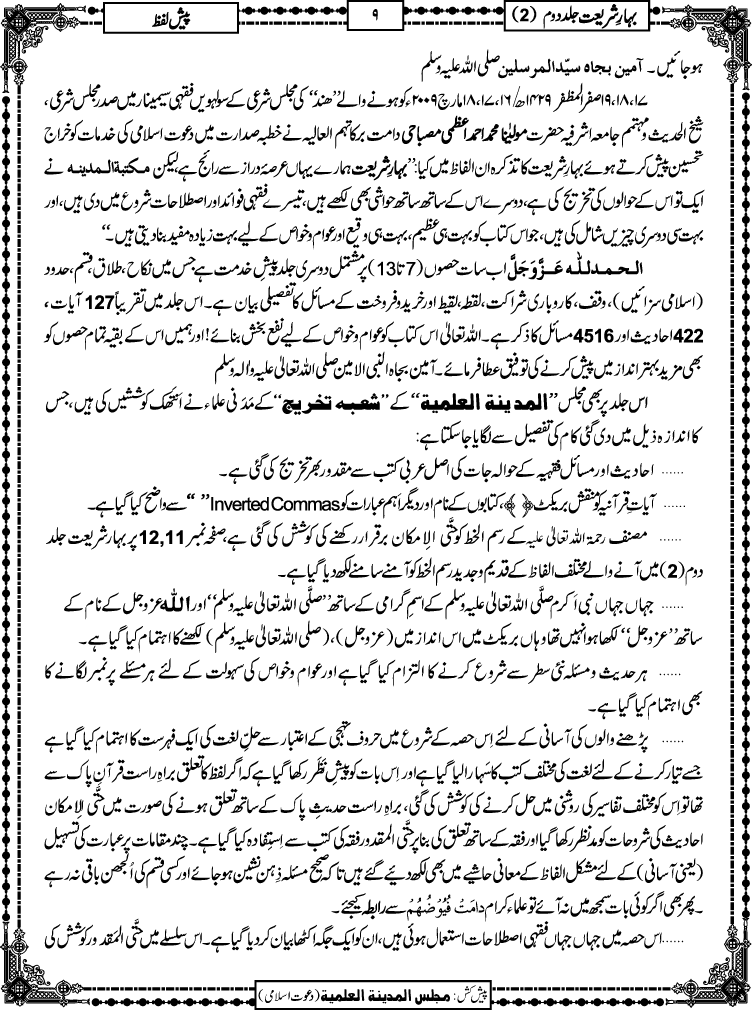 بہارِ شریعت جلد دوم (2)
۹
پیش لفظ
ہوجائیں۔ آمین بجاہ سیّدالمرسلین صلی اللہ علیہ وسلم
۱۷،۱۸،۱۹صفر المظفر ۱۴۲۹ھ/۱۶،۱۷،۱۸ مارچ ۲۰۰۹ء کو ہونے والے ’’ھند‘‘ کی مجلس شرعی کے سولہویں فقہی سیمینار میں صدر مجلس شرعی،
شیخ الحدیث و مہتمم جامعہ اشرفیہ حضرت مولیٰنا محمد احمد اعظمی مصباحی دامت برکاتہم العالیہ نے خطبہ صدارت میں دعوت اسلامی کی خدمات کو خراج
تحسین پیش کرتے ہوئے بہارِ شریعت کا تذکرہ ان الفاظ میں کیا: ’’بہارِ شریعت ہمارے یہاں عرصۂ دراز سے رائج ہے، لیکن مکتبۃ المدینہ نے
ایک تو اس کے حوالوں کی تخریج کی ہے، دوسرے اس کے ساتھ ساتھ حواشی بھی لکھے ہیں، تیسرے فقہی فوائد اور اصطلاحات شروع میں دی ہیں، اور
بہت سی دوسری چیزیں شامل کی ہیں، جو اس کتاب کو بہت ہی عظیم، بہت ہی وقیع اور عوام و خواص کے لیے بہت زیادہ مفید بنا دیتی ہیں۔‘‘
الحمدللہ عَزَّوَجَلَّ اب سات حصوں (7تا13) پر مشتمل دوسری جلد پیشِ خدمت ہے جس میں نکاح، طلاق، قسم، حدود
(اسلامی سزائیں)، وقف، کاروباری شراکت، لقطہ، لقیط اور خرید و فروخت کے مسائل کا تفصیلی بیان ہے۔ اس جلد میں تقریباً 127 آیات،
422 احادیث اور 4516 مسائل کا ذکر ہے۔ اللہ تعالیٰ اس کتاب کو عوام و خواص کے لیے نفع بخش بنائے! اور ہمیں اس کے بقیہ تمام حصوں کو
بھی مزید بہتر انداز میں پیش کرنے کی توفیق عطا فرمائے۔ آمین بجاہ النبی الامین صلی اللہ تعالیٰ علیہ والہ وسلم
اس جلد پر بھی مجلس ’’المدینۃ العلمیۃ‘‘ کے ’’شعبہ تخریج‘‘ کے مَدَنی علماء نے انتھک کوششیں کی ہیں، جس
کا اندازہ ذیل میں دی گئی کام کی تفصیل سے لگایا جاسکتا ہے:
...... احادیث اور مسائل فقہیہ کے حوالہ جات کی اصل عربی کتب سے مقدور بھر تخریج کی گئی ہے۔
...... آیاتِ قرآنیہ کو منقش بریکٹ﴿ ﴾، کتابوں کے نام اور دیگر اہم عبارات کو Inverted Commas ’’ ‘‘ سے واضح کیا گیا ہے۔
...... مصنف رحمۃ اللہ تعالیٰ علیہ کے رسم الخط کو حتَّی الاِمکان برقرار رکھنے کی کوشش کی گئی ہے، صفحہ نمبر 12,11 پر بہار شریعت جلد
دوم (2) میں آنے والے مختلف الفاظ کے قدیم و جدید رسم الخط کو آمنے سامنے لکھ دیا گیا ہے۔
...... جہاں جہاں نبی اکرم صلَّی اللہ تعالیٰ علیہ وسلم کے اسمِ گرامی کے ساتھ ’’صلَّی اللہ تعالیٰ علیہ وسلم‘‘ اور اللہ عزوجل کے نام کے
ساتھ ’’عزوجل‘‘ لکھا ہوا نہیں تھا وہاں بریکٹ میں اس انداز میں (عزوجل)، (صلی اللہ تعالیٰ علیہ وسلم) لکھنے کا اہتمام کیا گیا ہے۔
...... ہر حدیث و مسئلہ نئی سطر سے شروع کرنے کا التزام کیا گیا ہے اور عوام و خواص کی سہولت کے لئے ہر مسئلے پر نمبر لگانے کا
بھی اہتمام کیا گیا ہے۔
...... پڑھنے والوں کی آسانی کے لئے اِس حصہ کے شروع میں حروف تہجی کے اعتبار سے حلِّ لغت کی ایک فہرست کا اہتمام کیا گیا ہے
جسے تیار کرنے کے لئے لغت کی مختلف کتب کا سہارا لیا گیا ہے اور اِس بات کو پیشِ نَظَر رکھا گیا ہے کہ اگر لفظ کا تعلق براہِ راست قرآنِ پاک سے
تھا تو اِس کو مختلف تفاسیر کی روشنی میں حل کرنے کی کوشش کی گئی، براہِ راست حدیثِ پاک کے ساتھ تعلق ہونے کی صورت میں حتَّی الاِمکان
احادیث کی شروحات کو مدنظر رکھا گیا اور فقہ کے ساتھ تعلق کی بنا پر حتَّی المقدور فقہ کی کتب سے اِستِفادہ کیا گیا ہے۔ چند مقامات پر عبارت کی تسہیل
(یعنی آسانی) کے لئے مشکل الفاظ کے معانی حاشیے میں بھی لکھ دیئے گئے ہیں تا کہ صحیح مسئلہ ذِہن نشین ہو جائے اور کسی قسم کی اُلجھن باقی نہ رہے
۔ پھر بھی اگر کوئی بات سمجھ میں نہ آئے تو علماء کرام دامَتْ فُیُوْضُہُمْ سے رابطہ کیجئے۔
......اس حصہ میں جہاں جہاں فقہی اصطلاحات استعمال ہوئی ہیں، ان کو ایک جگہ اکٹھا بیان کردیا گیا ہے۔ اس سلسلے میں حتَّی المقدور کوشش کی
پیش کش: مجلس المدینۃ العلمیۃ (دعوتِ اسلامی)